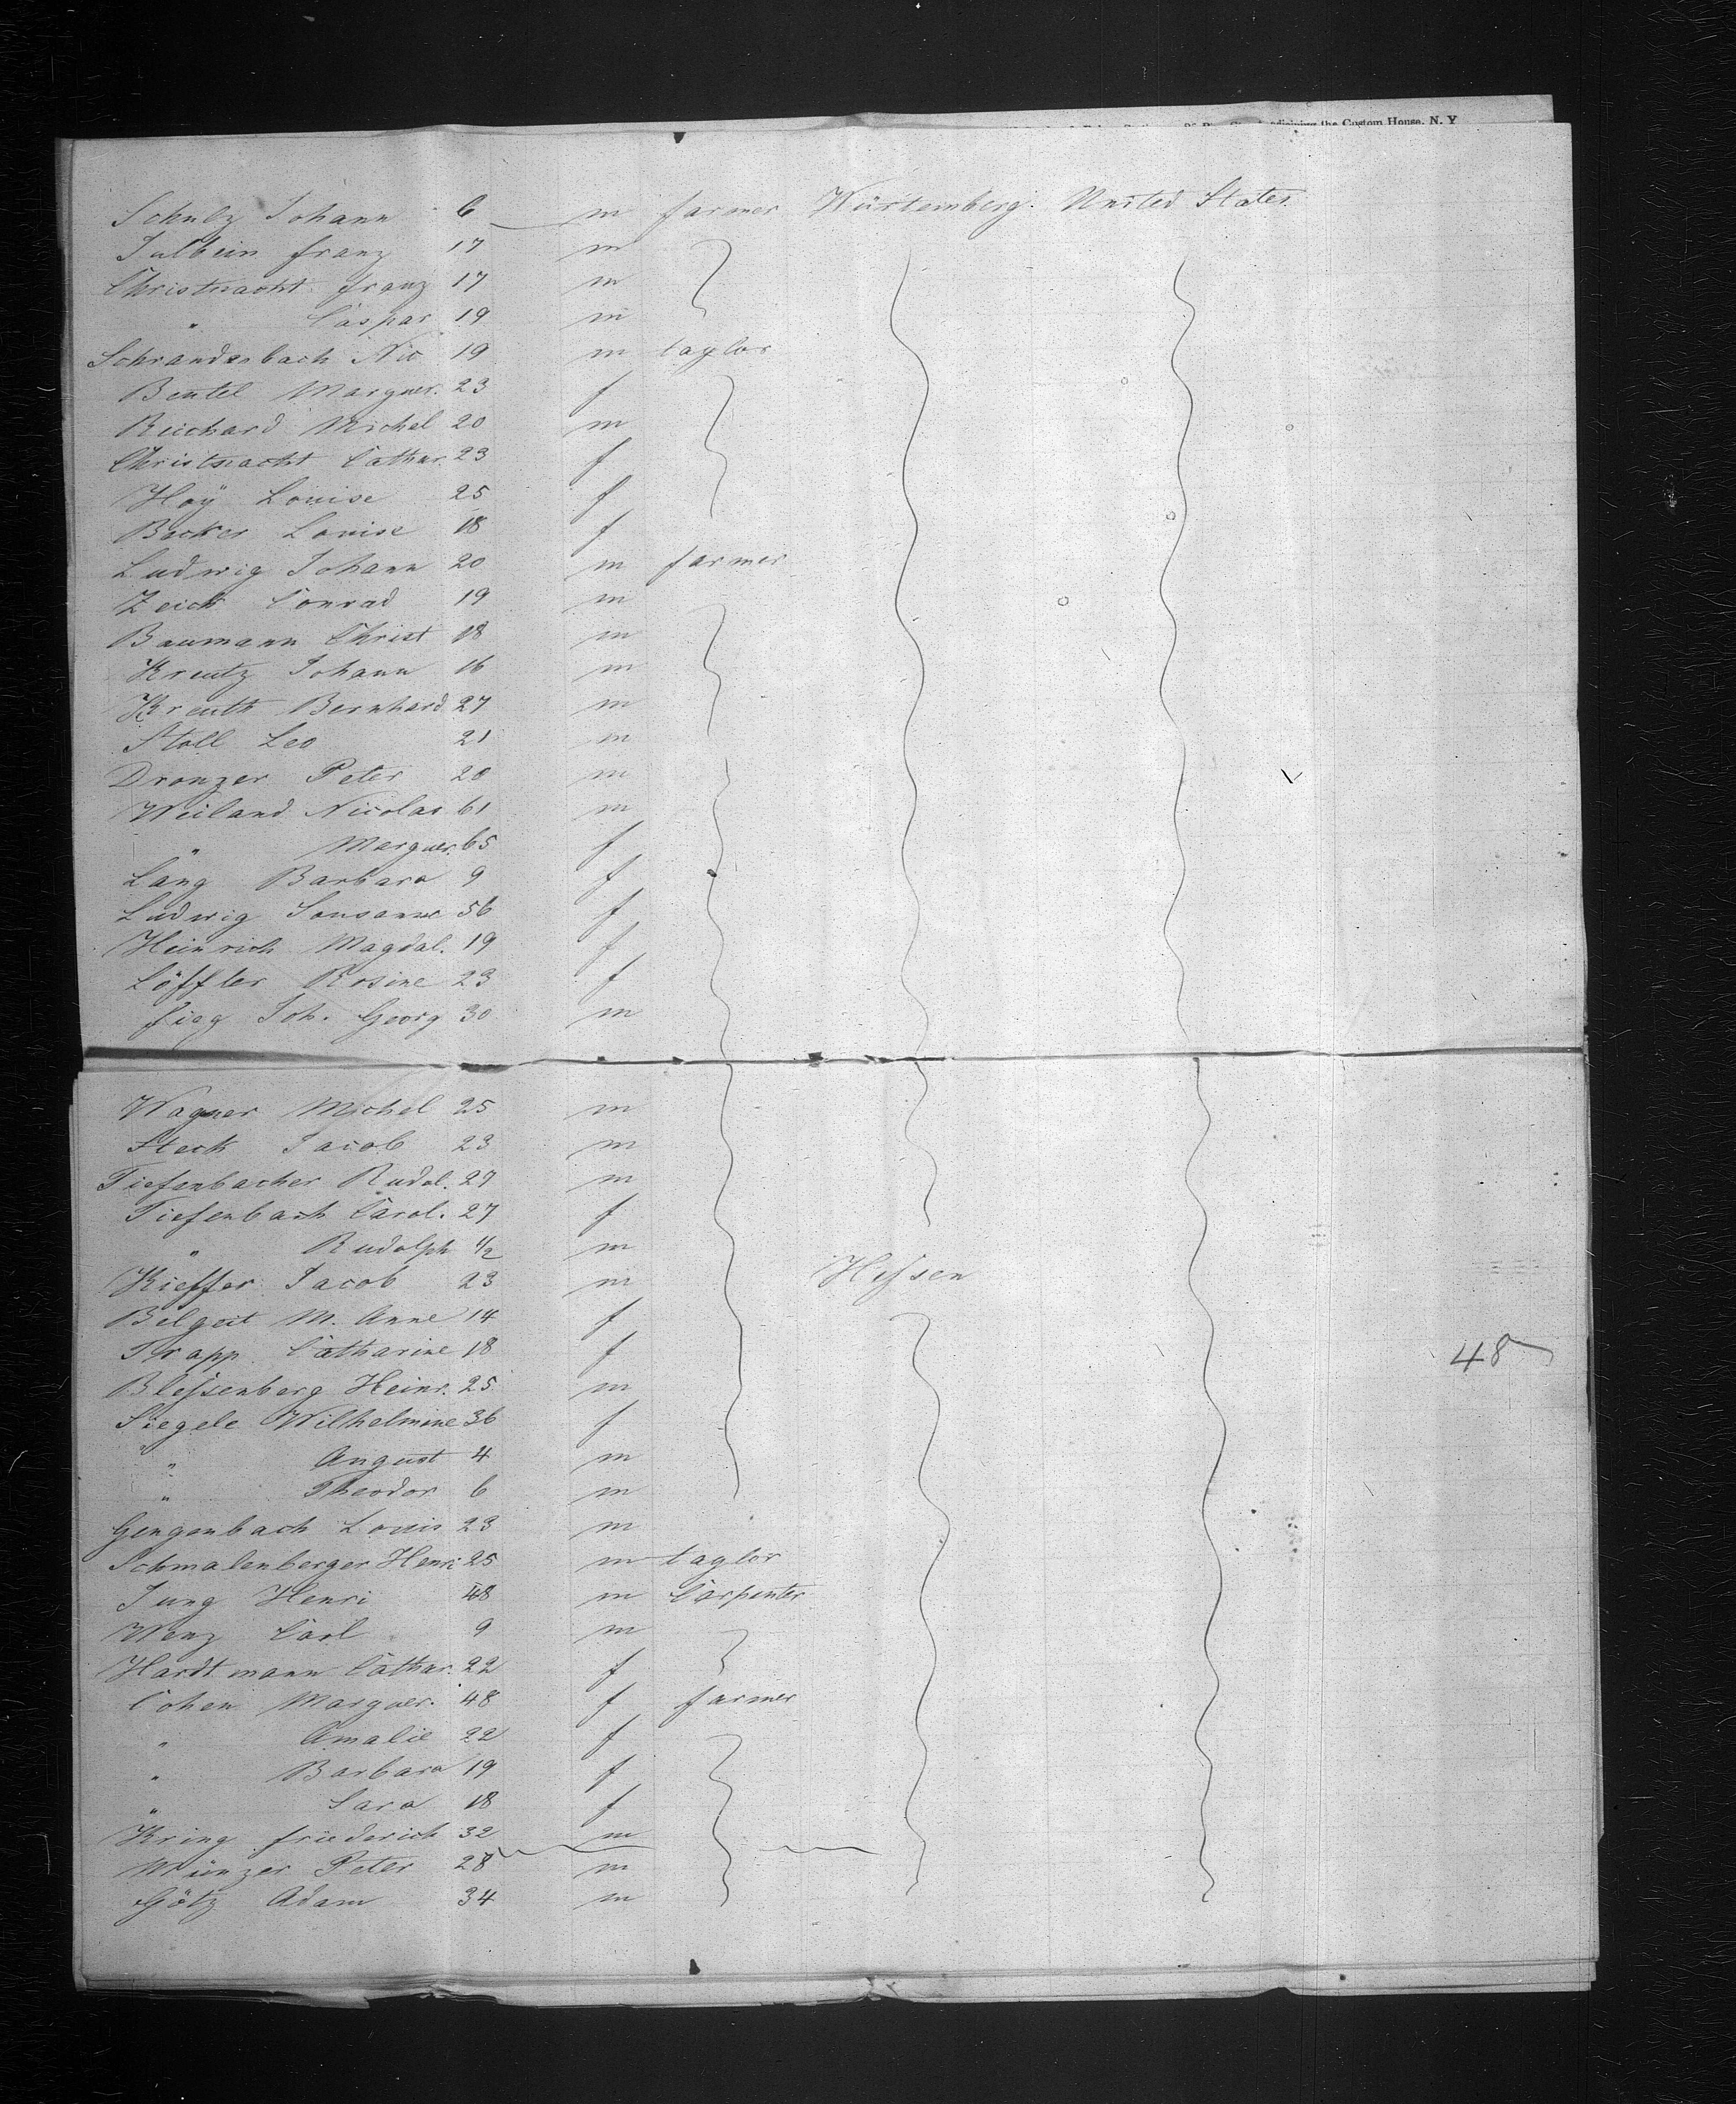 adjoining the Custom House, N. Y
Schulz Johann 6 m farmer Würtemberg. United States
Julbein franz 17 m
Christnacht franz 17 m
" Caspar 19 m
Schrandesbach Nic 19 m taylor
Beutel Marguer. 23 f
Reichard Michel 20 m
Christnacht Cathar. 23 f
Hoÿ Louise 25 f
Becker Louise 18 f
Ludwig Johann 20 m farmer
Zeich Conrad 19 m
Baumann Christ 18 m
Kreutz Johann 16 m
Kreuth Bernhard 27 m
Stoll Leo 21 m
Dronzer Peter 20 m
Weiland Nicolas 61 m
" Marguer. 65 f
Lang Barbara 9 f
Ludwig Sousanne 56 f
Heinrich Magdal. 19 f
Löffler Rosine 23 f
fieg Joh. Georg 30 m
Wagner Michel 25 m
Steck Jacob 23 m
Tiefenbacher Rudol. 27 m
Tiefenbach Carol. 27 f
" Rudolph 1/2 m
Kieffer Jacob 23 m Hessen
Belgeit M. Anne 14 f
Trapp Catharine 18 f 48
Blessenberg Heinr. 25 m
Siegele Wilhelmine 36 f
" August 4 m
" Theodor 6 m
Gengenbach Louis 23 m
Schmalenberger Henri 25 m taylor
Jung Henri 48 m Carpenter
Wenz Carl 9 m
Hardtmann Cathar. 22 f
Cohen Marguer. 48 f farmer
" Amalie 22 f
" Barbara 19 f
" Sara 18 f
Kring friederich 32 m
Münzer Peter 28 m
Götz Adam 34 m